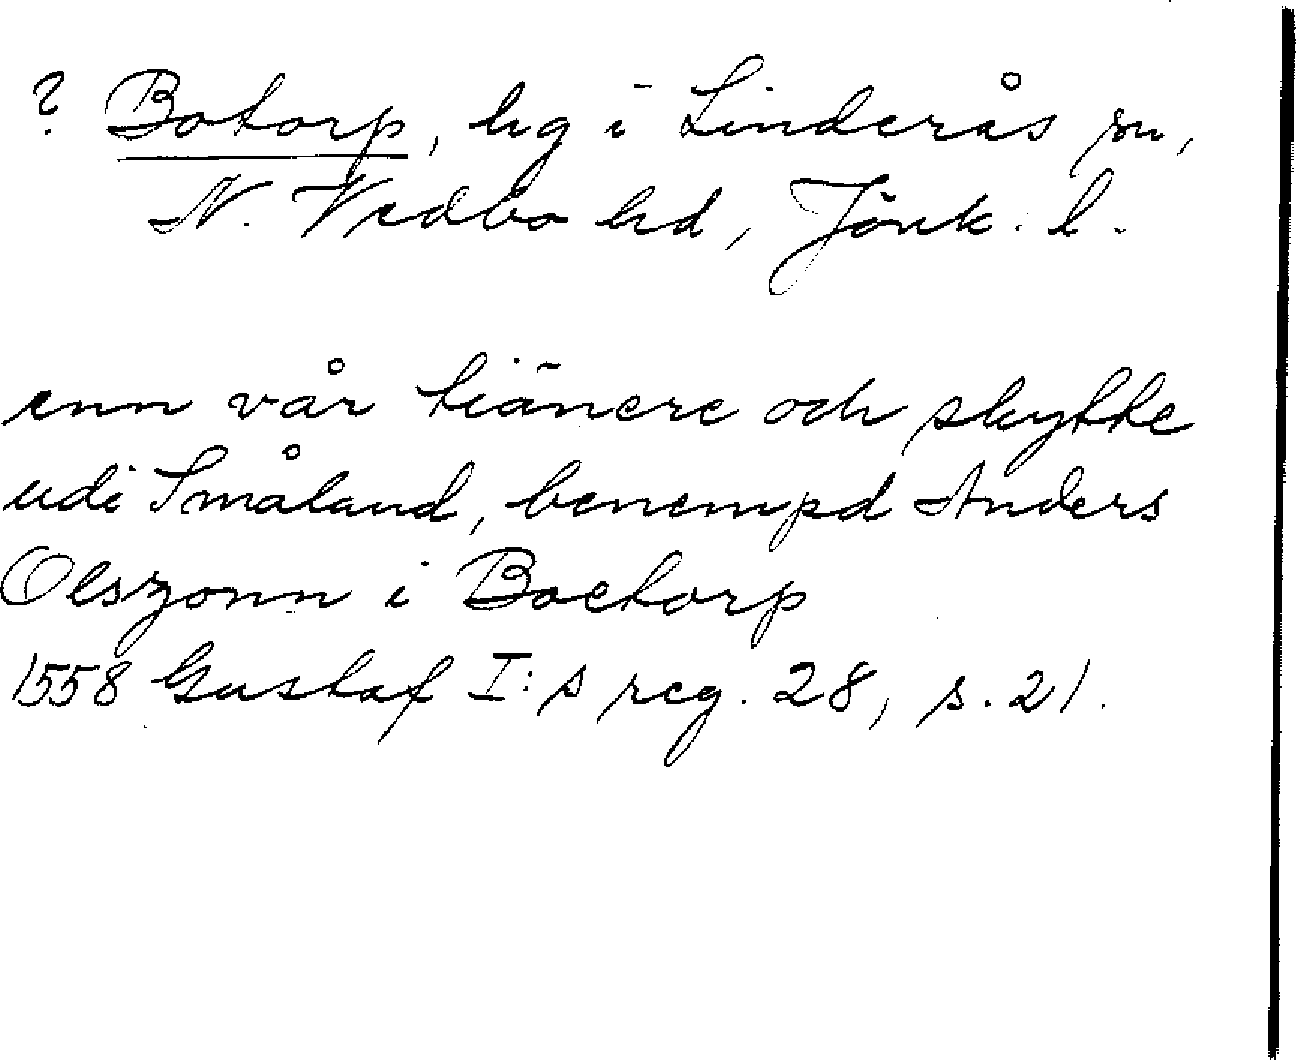 ? Botorp, hg i Linderås sn,
N. Vedbo hd, Jönk. l.
enn vår tiänere och skytte
udi Småland, benempd Anders
Olszonn i Boetorp
1558 Gustaf I:s reg. 28, s. 21.